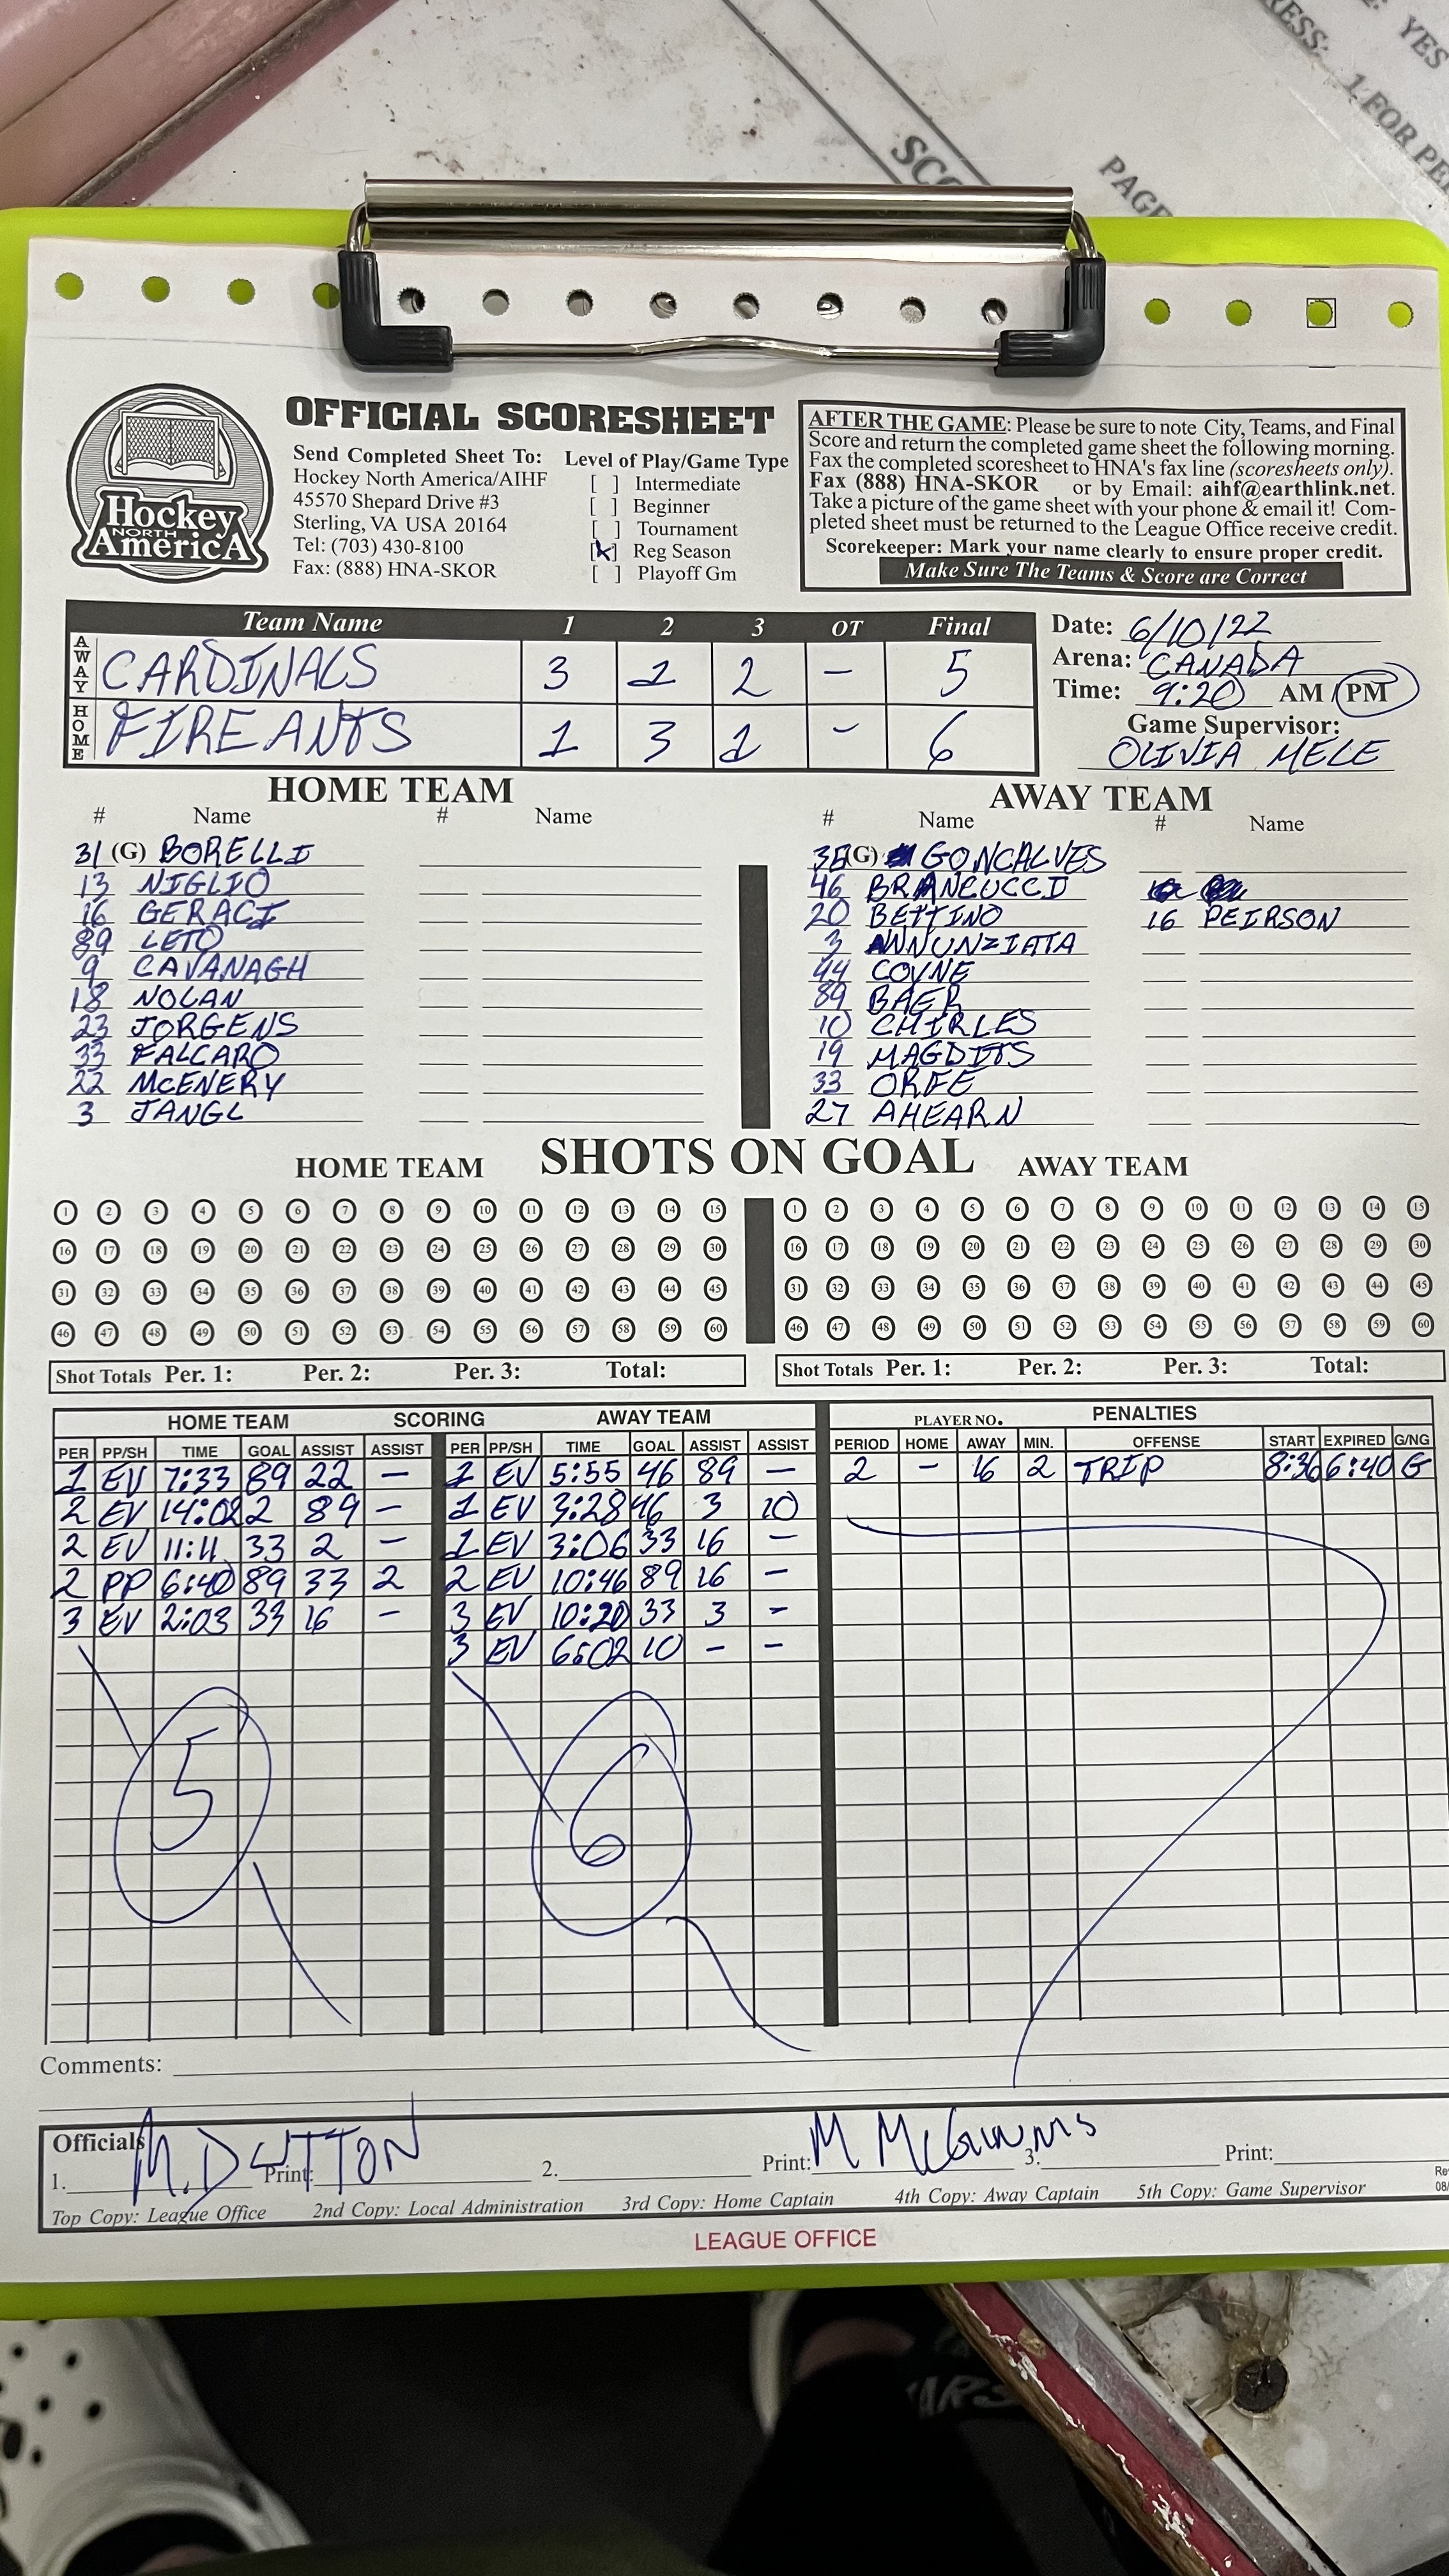 YES
RESS:
1 FOR PE
PAGE
SCO
OFFICIAL SCORESHEET
Send Completed Sheet To:
Hockey North America/AIHF
45570 Shepard Drive #3
Sterling, VA USA 20164
Tel: (703) 430-8100
Fax: (888) HNA-SKOR
Level of Play/Game Type
[ ] Intermediate
[ ] Beginner
[ ] Tournament
[x] Reg Season
[ ] Playoff Gm
AFTER THE GAME: Please be sure to note City, Teams, and Final
Score and return the completed game sheet the following morning.
Fax the completed scoresheet to HNA's fax line (scoresheets only).
Fax (888) HNA-SKOR or by Email: aihf@earthlink.net.
Take a picture of the game sheet with your phone & email it! Com-
pleted sheet must be returned to the League Office receive credit.
Scorekeeper: Mark your name clearly to ensure proper credit.
Make Sure The Teams & Score are Correct
Hockey
NORTH
AmericA
Team Name 1 2 3 OT Final
AWAY CARDINALS 3 1 2 - 5
HOME FIREANTS 1 3 1 - 6
Date: 6/10/22
Arena: CANADA
Time: 9:20 AM / PM
Game Supervisor:
OLIVIA MELE
HOME TEAM
# Name # Name
31 (G) BORELLI
13 NIGLIO
16 GERACI
89 LETO
9 CAVANAGH
18 NOLAN
23 JORGENS
33 FALCARO
22 McENERY
3 JANGL
AWAY TEAM
# Name # Name
(G) GONCALVES
46 BRANCUCCI
20 BETTINO 16 PEIRSON
3 ANNUNZIATA
44 COYNE
89 BAER
10 CHIRLES
19 MAGDITS
33 ORFE
27 AHEARN
SHOTS ON GOAL
HOME TEAM AWAY TEAM
1 2 3 4 5 6 7 8 9 10 11 12 13 14 15 1 2 3 4 5 6 7 8 9 10 11 12 13 14 15
16 17 18 19 20 21 22 23 24 25 26 27 28 29 30 16 17 18 19 20 21 22 23 24 25 26 27 28 29 30
31 32 33 34 35 36 37 38 39 40 41 42 43 44 45 31 32 33 34 35 36 37 38 39 40 41 42 43 44 45
46 47 48 49 50 51 52 53 54 55 56 57 58 59 60 46 47 48 49 50 51 52 53 54 55 56 57 58 59 60
Shot Totals Per. 1: Per. 2: Per. 3: Total: Shot Totals Per. 1: Per. 2: Per. 3: Total:
HOME TEAM SCORING AWAY TEAM PLAYER NO. PENALTIES
PER PP/SH TIME GOAL ASSIST ASSIST PER PP/SH TIME GOAL ASSIST ASSIST PERIOD HOME AWAY MIN. OFFENSE START EXPIRED G/NG
1 EV 7:33 89 22 - 1 EV 5:55 46 89 - 2 - 16 2 TRIP 8:36 6:40 G
2 EV 14:02 2 89 - 1 EV 3:28 46 3 10
2 EV 11:11 33 2 - 1 EV 3:06 33 16 -
2 PP 6:40 89 33 2 2 EV 10:46 89 16 -
3 EV 2:03 33 16 - 3 EV 10:20 33 3 -
3 EV 6:02 10 - -
5 6
Comments:
Officials
1. M. DUTTON Print: 2. Print: M McGinnis 3. Print:
Top Copy: League Office 2nd Copy: Local Administration 3rd Copy: Home Captain 4th Copy: Away Captain 5th Copy: Game Supervisor
Re
08/
LEAGUE OFFICE